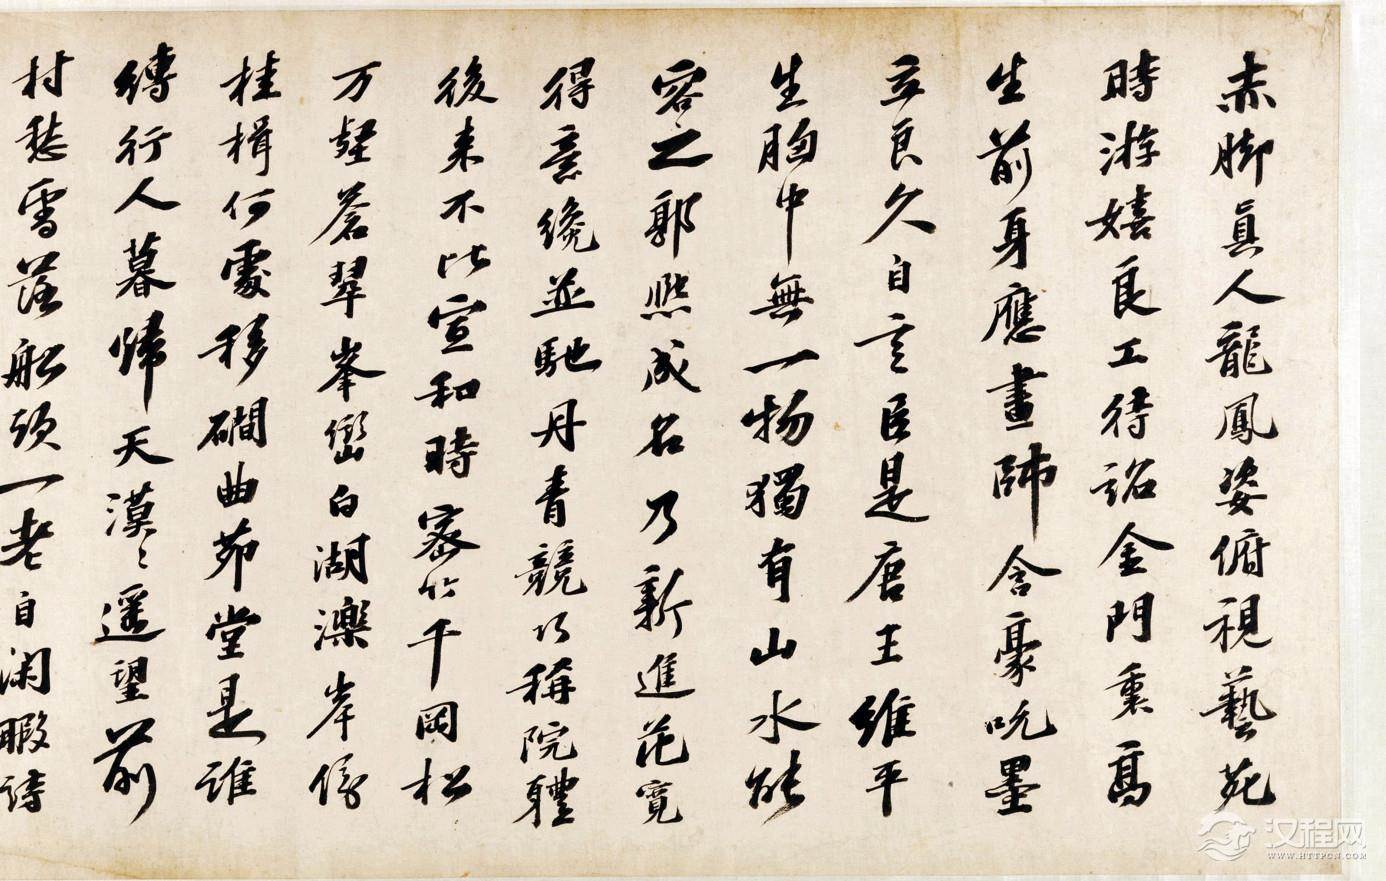 赤脚真人龍鳳姿俯視藝苑
時游嬉良工待詔金門裏高
生前身應畫師含豪吮墨
立良久自言臣是唐王維平
生胸中無一物獨有山水能
容之郭熙成名乃新進范寬
得意纔並馳丹青競巧稱院體
後來不比宣和時密竹千岡松
万壑蒼翠峯巒白湖濼岸傍
桂楫何處移磵曲茆堂是誰
縛行人暮歸天漠〻遥望前
村愁雪落船頭一老自閑暇詩
汉程网
WWW.HTTPCN.COM